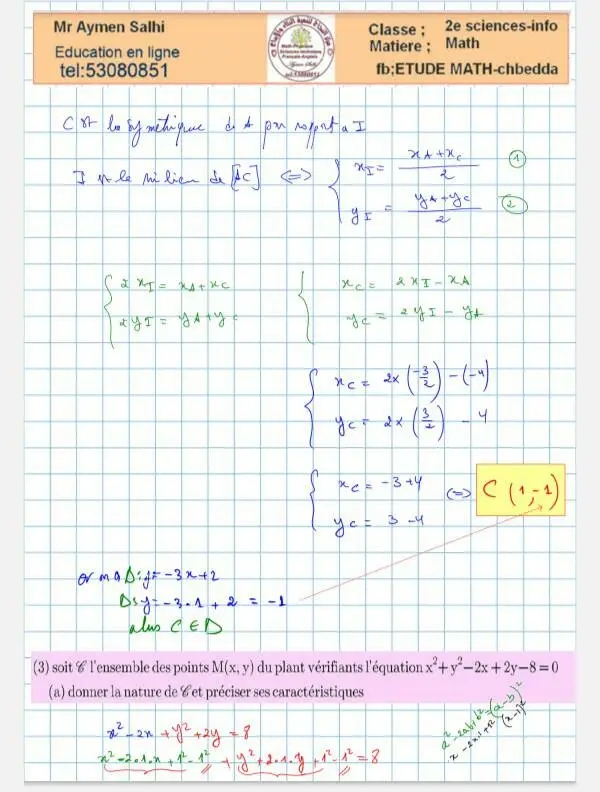 Mr Aymen Salhi
Education en ligne
tel:53080851
Classe ; 2e sciences-info
Matiere ; Math
fb;ETUDE MATH-chbedda
C est la symétrique de A par rapport a I
I est le milieu de [AC] <=> { x_I = (x_A + x_C)/2 (1)
y_I = (y_A + y_C)/2 (2)
{ 2x_I = x_A + x_C { x_C = 2x_I - x_A
2y_I = y_A + y_C y_C = 2y_I - y_A
{ x_C = 2×(-3/2) - (-4)
y_C = 2×(3/2) - 4
{ x_C = -3+4 <=> C (1,-1)
y_C = 3-4
or on a D:y=-3x+2
D: y=-3·1+2 = -1
alors C∈D
(3) soit 𝒞 l'ensemble des points M(x, y) du plant vérifiants l'équation x²+y²−2x+2y−8=0
(a) donner la nature de 𝒞 et préciser ses caractéristiques
x²-2x+y²+2y=8
x²-2·1·x+1²-1²+y²+2·1·y+1²-1²=8
a²-2ab+b²=(a-b)²
(x-1)²